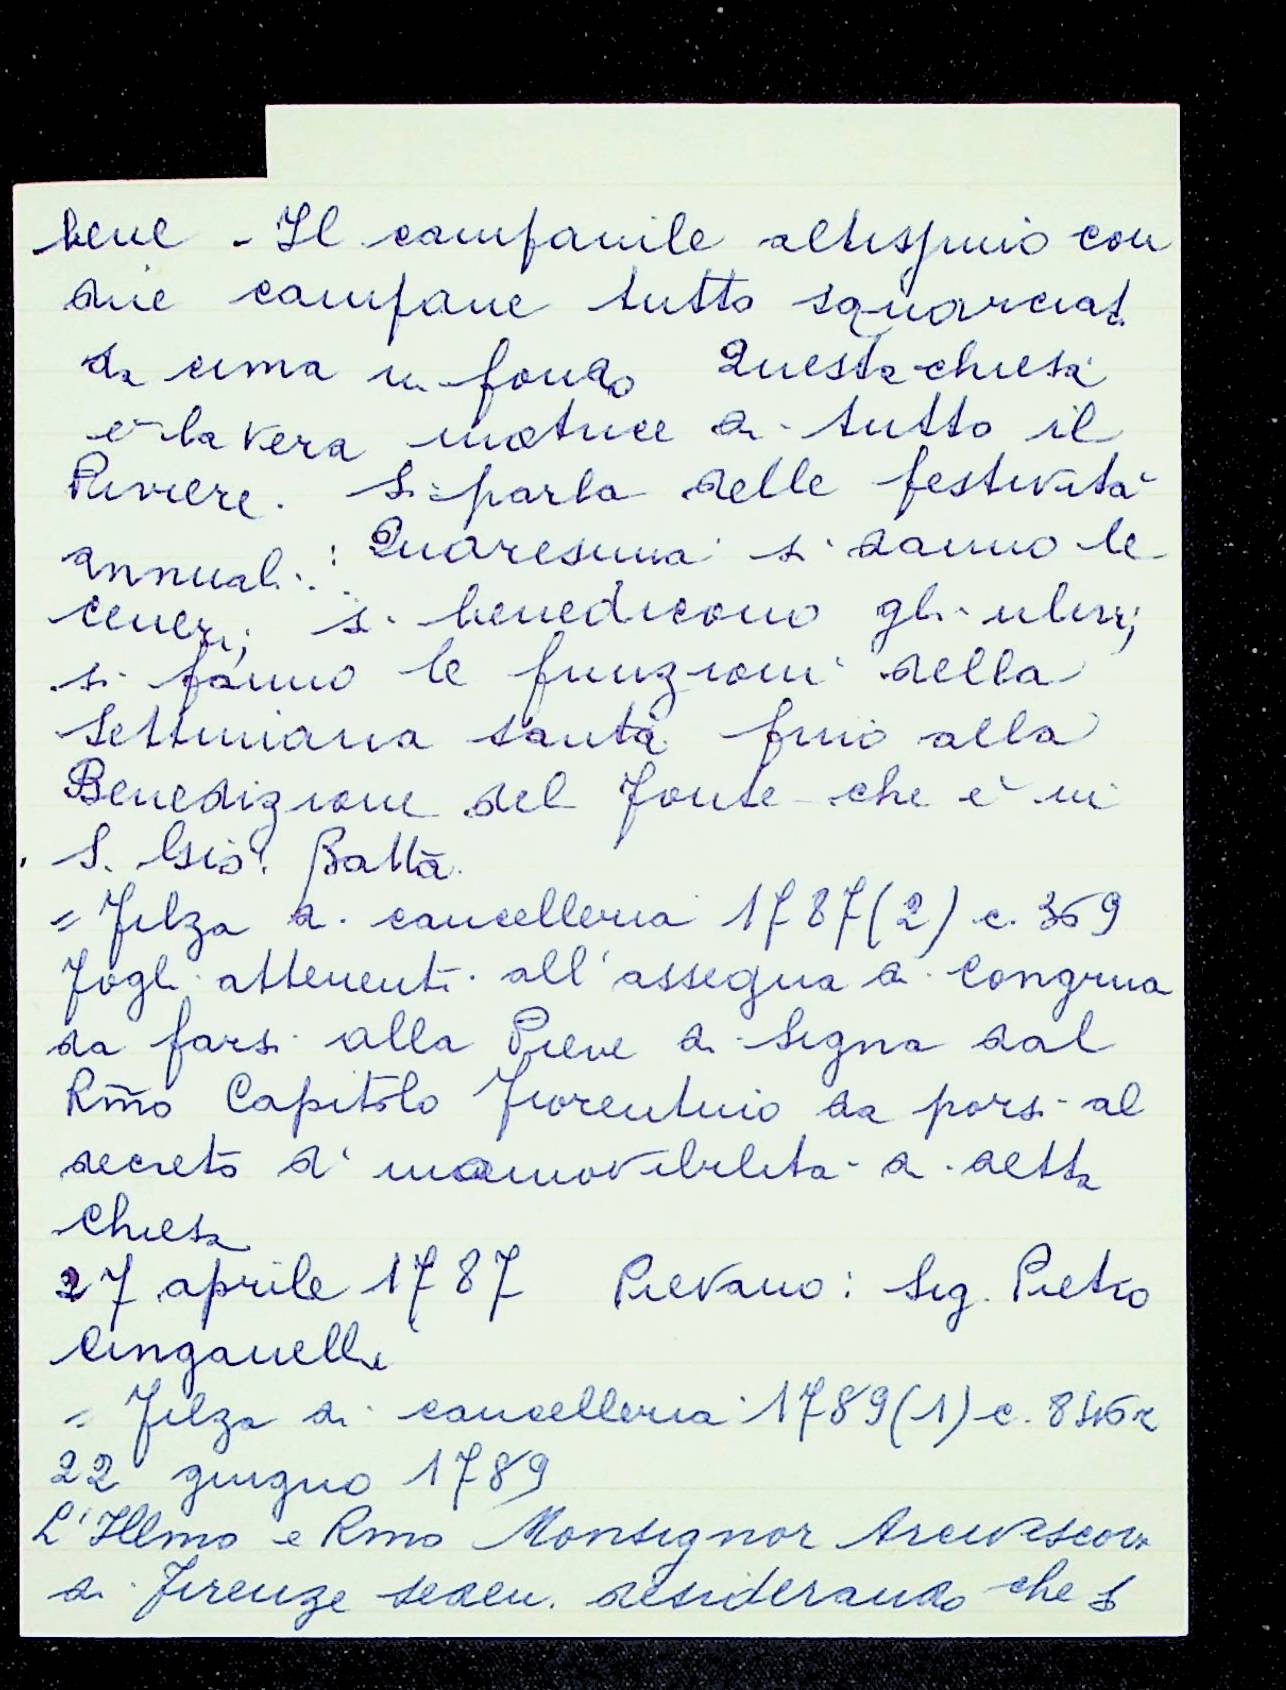 bene - Il campanile altissimo con
due campane tutto squarciat.
da cima in fondo Questa chiesa
è la vera matrice di tutto il
Piviere. Si parla delle festività
annuali: Quaresima si danno le
ceneri; si benedicono gli ulivi;
si fanno le funzioni della
Settimana santa fino alla
Benedizione del Fonte che è in
S. Gio: Batta.
= Filza di cancelleria 1787(2) c. 369
Fogli attenenti all'assegna di Congrua
da farsi alla Pieve di Signa dal
Rmo Capitolo Fiorentino da porsi al
decreto d'inamovibilità di detta
Chiesa
27 aprile 1787 Pievano: Sig. Pietro
Cinganelli
= Filza di cancelleria 1789(1) c. 846r
22 giugno 1789
L'Illmo e Rmo Monsignor Arcivescovo
di Firenze seden. desiderando che